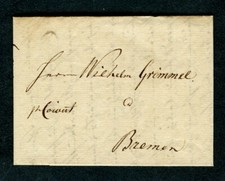 Herrn Wilhelm Grimmel
Bremen